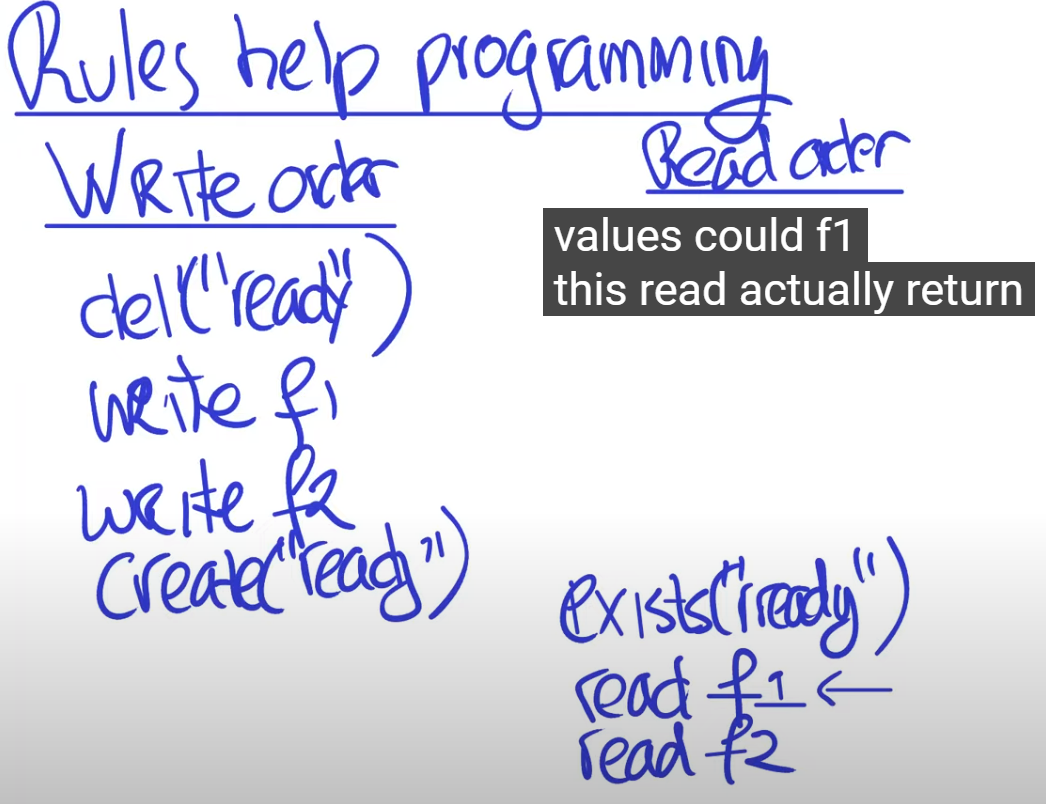 Rules help programming
Write order
del("ready")
write f1
write f2
create("ready")
Read order
values could f1
this read actually return
exists("ready")
read f1 ←
read f2